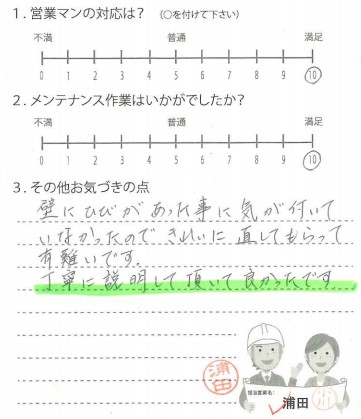 1. 営業マンの対応は？ (○を付けて下さい)
不満 普通 満足
0 1 2 3 4 5 6 7 8 9 10
2. メンテナンス作業はいかがでしたか？
不満 普通 満足
0 1 2 3 4 5 6 7 8 9 10
3. その他お気づきの点
壁にひびがあった事に気が付いて
いなかったのできれいに直してもらって
有難いです。
丁寧に説明して頂いて良かったです
浦田
担当営業名:
浦田